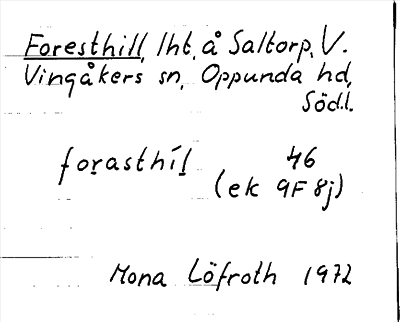 Foresthill, lht. å Saltorp, V.
Vingåkers sn, Oppunda hd,
Södl.
forasthíl 46
(ek 9F 8j)
Mona Löfroth 1972